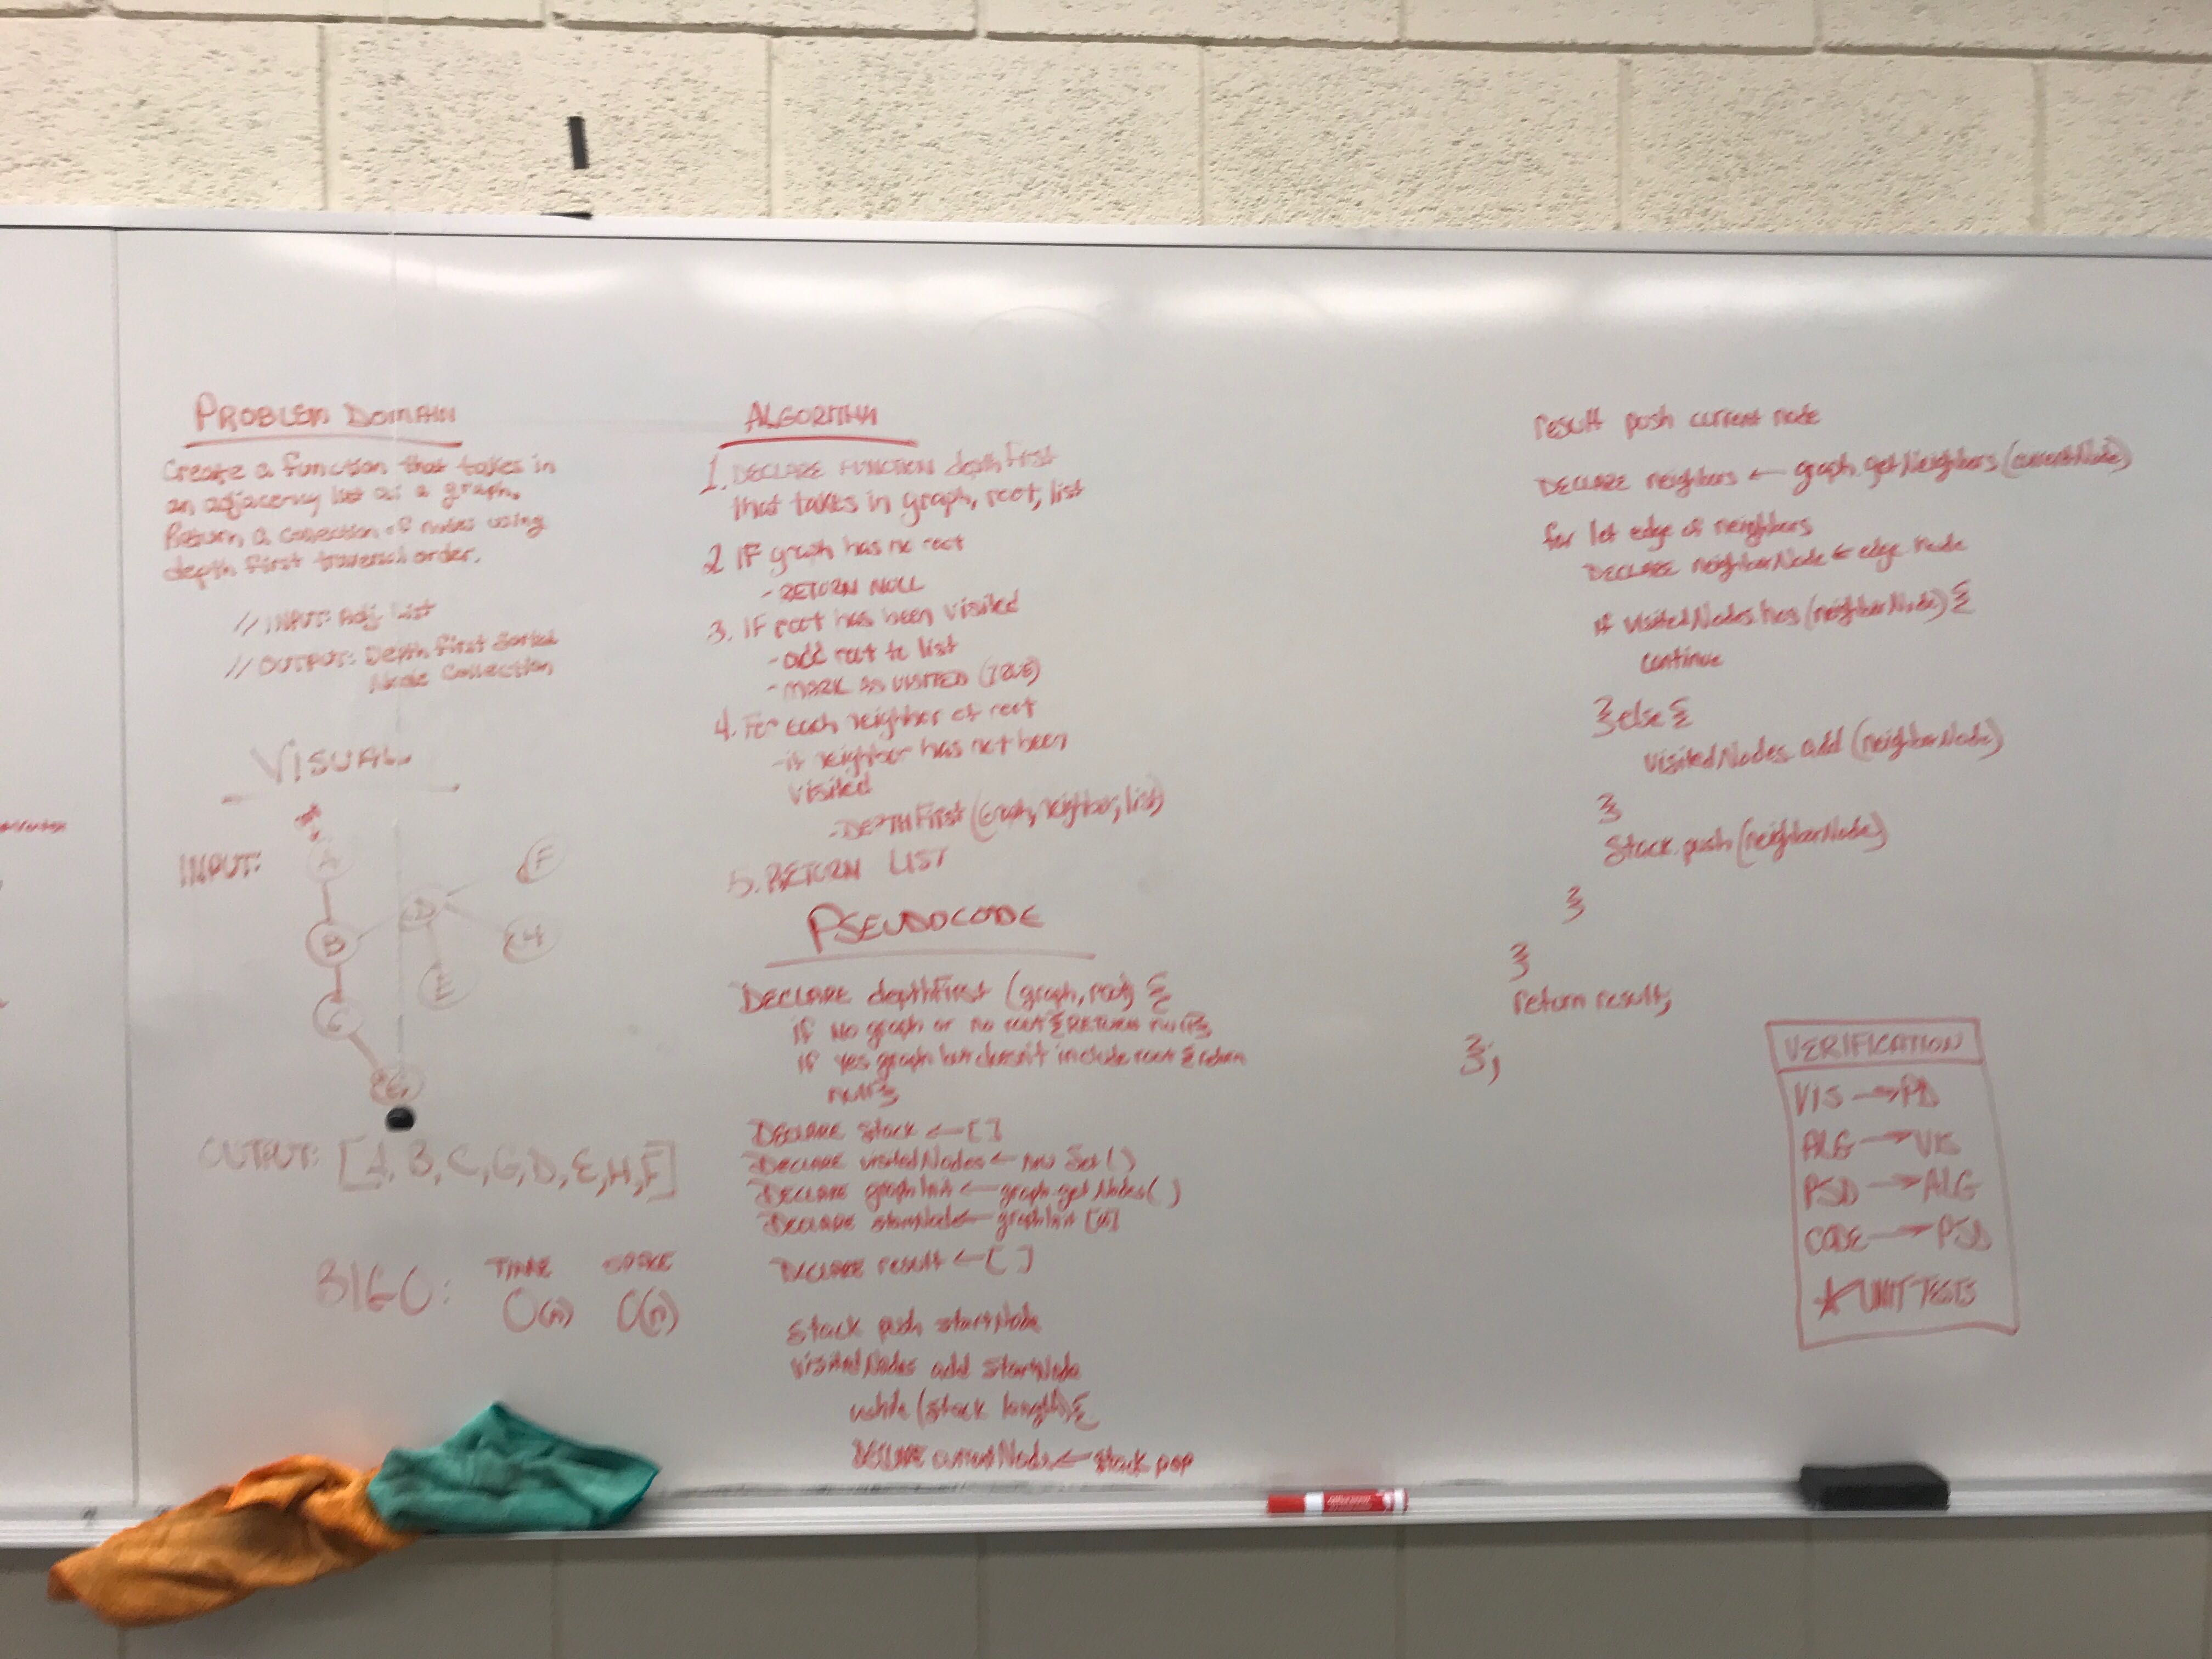 PROBLEM DOMAIN
Create a function that takes in
an adjacency list as a graph.
Return a collection of nodes using
depth first traversal order.
// INPUT: Adj List
// OUTPUT: Depth First Sorted
Node Collection
VISUAL
INPUT:
A
B
C
G
D
E
H
F
OUTPUT: [A, B, C, G, D, E, H, F]
BIG O: TIME SPACE
O(n) O(n)
ALGORITHM
1. DECLARE FUNCTION depthFirst
that takes in graph, root, list
2 IF graph has no root
- RETURN NULL
3. IF root has been visited
- add root to list
- MARK AS VISITED (TRUE)
4. For each neighbor of root
- if neighbor has not been
visited
- DEPTHFirst (Graph, neighbor, list)
5. RETURN LIST
PSEUDOCODE
DECLARE depthFirst (graph, root) {
if No graph or no root {RETURN null};
if yes graph but doesn't include root {return
null}
DECLARE stack ← [ ]
DECLARE visitedNodes ← new Set ( )
DECLARE ← graph.getNodes( )
DECLARE startNode ←
DECLARE result ← [ ]
Stack push startNode
visitedNodes add startNode
while (stack length) {
DECLARE currentNode ← stack pop
result push current node
DECLARE neighbors ← graph.getNeighbors (currentNode)
for let edge of neighbors
DECLARE neighborNode ← edge.node
if visitedNodes.has (neighborNode) {
continue
} else {
visitedNodes.add (neighborNode)
}
Stack.push (neighborNode)
}
}
return result;
};
VERIFICATION
VIS → PD
ALG → VIS
PSD → ALG
CODE → PSD
★ UNIT TESTS